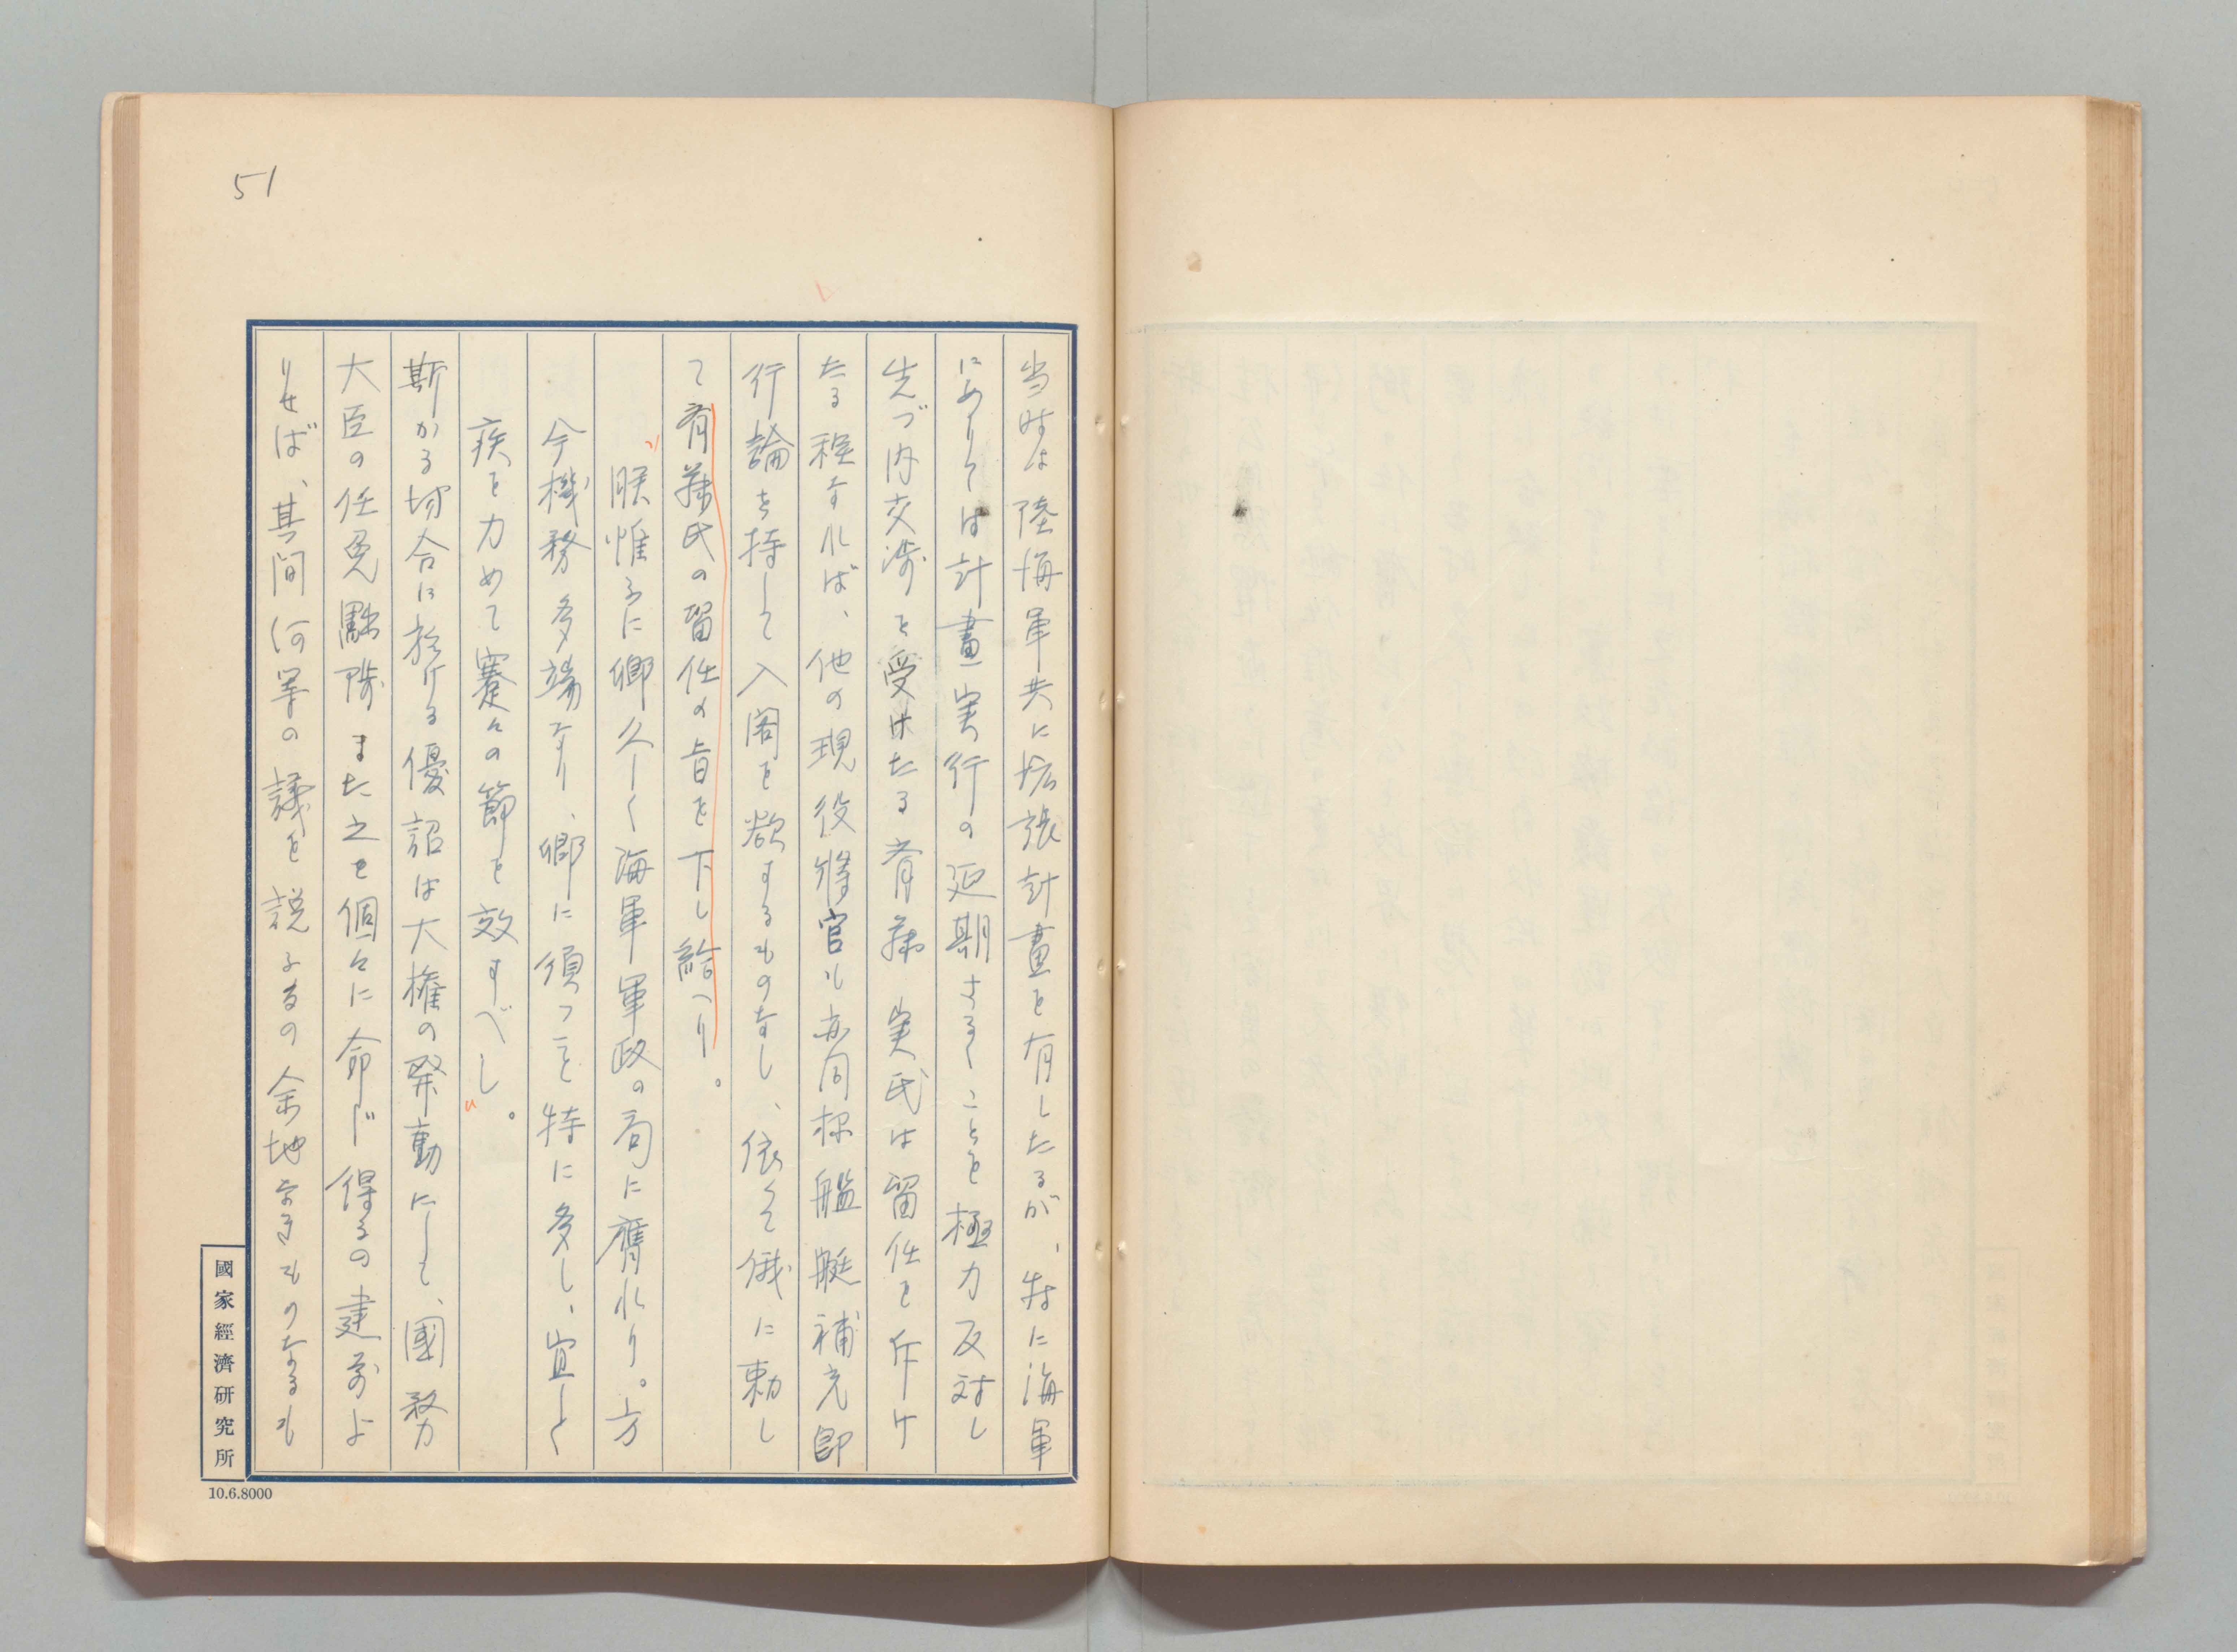 51
当時は陸海軍共に拡張計畫を有したるが、特に海軍
にありては計畫実行の延期さるゝことを極力反対し
先づ内交渉を受けたる斉藤実氏は留任を斥け
たる程なれば、他の現役将官も亦同様艦艇補充即
行論を持して入閣を欲するものなし、依て俄に勅し
て斉藤氏の留任の旨を下し給へり。
〃朕惟ふに卿久しく海軍軍政の局に膺れり。方
今機務多端なり、卿に須つこと特に多し、宜しく
疾を力めて蹇々の節を效すべし。〃
斯かる場合に於ける優詔は大権の発動にして、國務
大臣の任免黜陟また之を個々に命じ得るの建前よ
りせば、其間何等の議を説ふるの余地なきものなるも
國家經濟研究所
10.6.8000